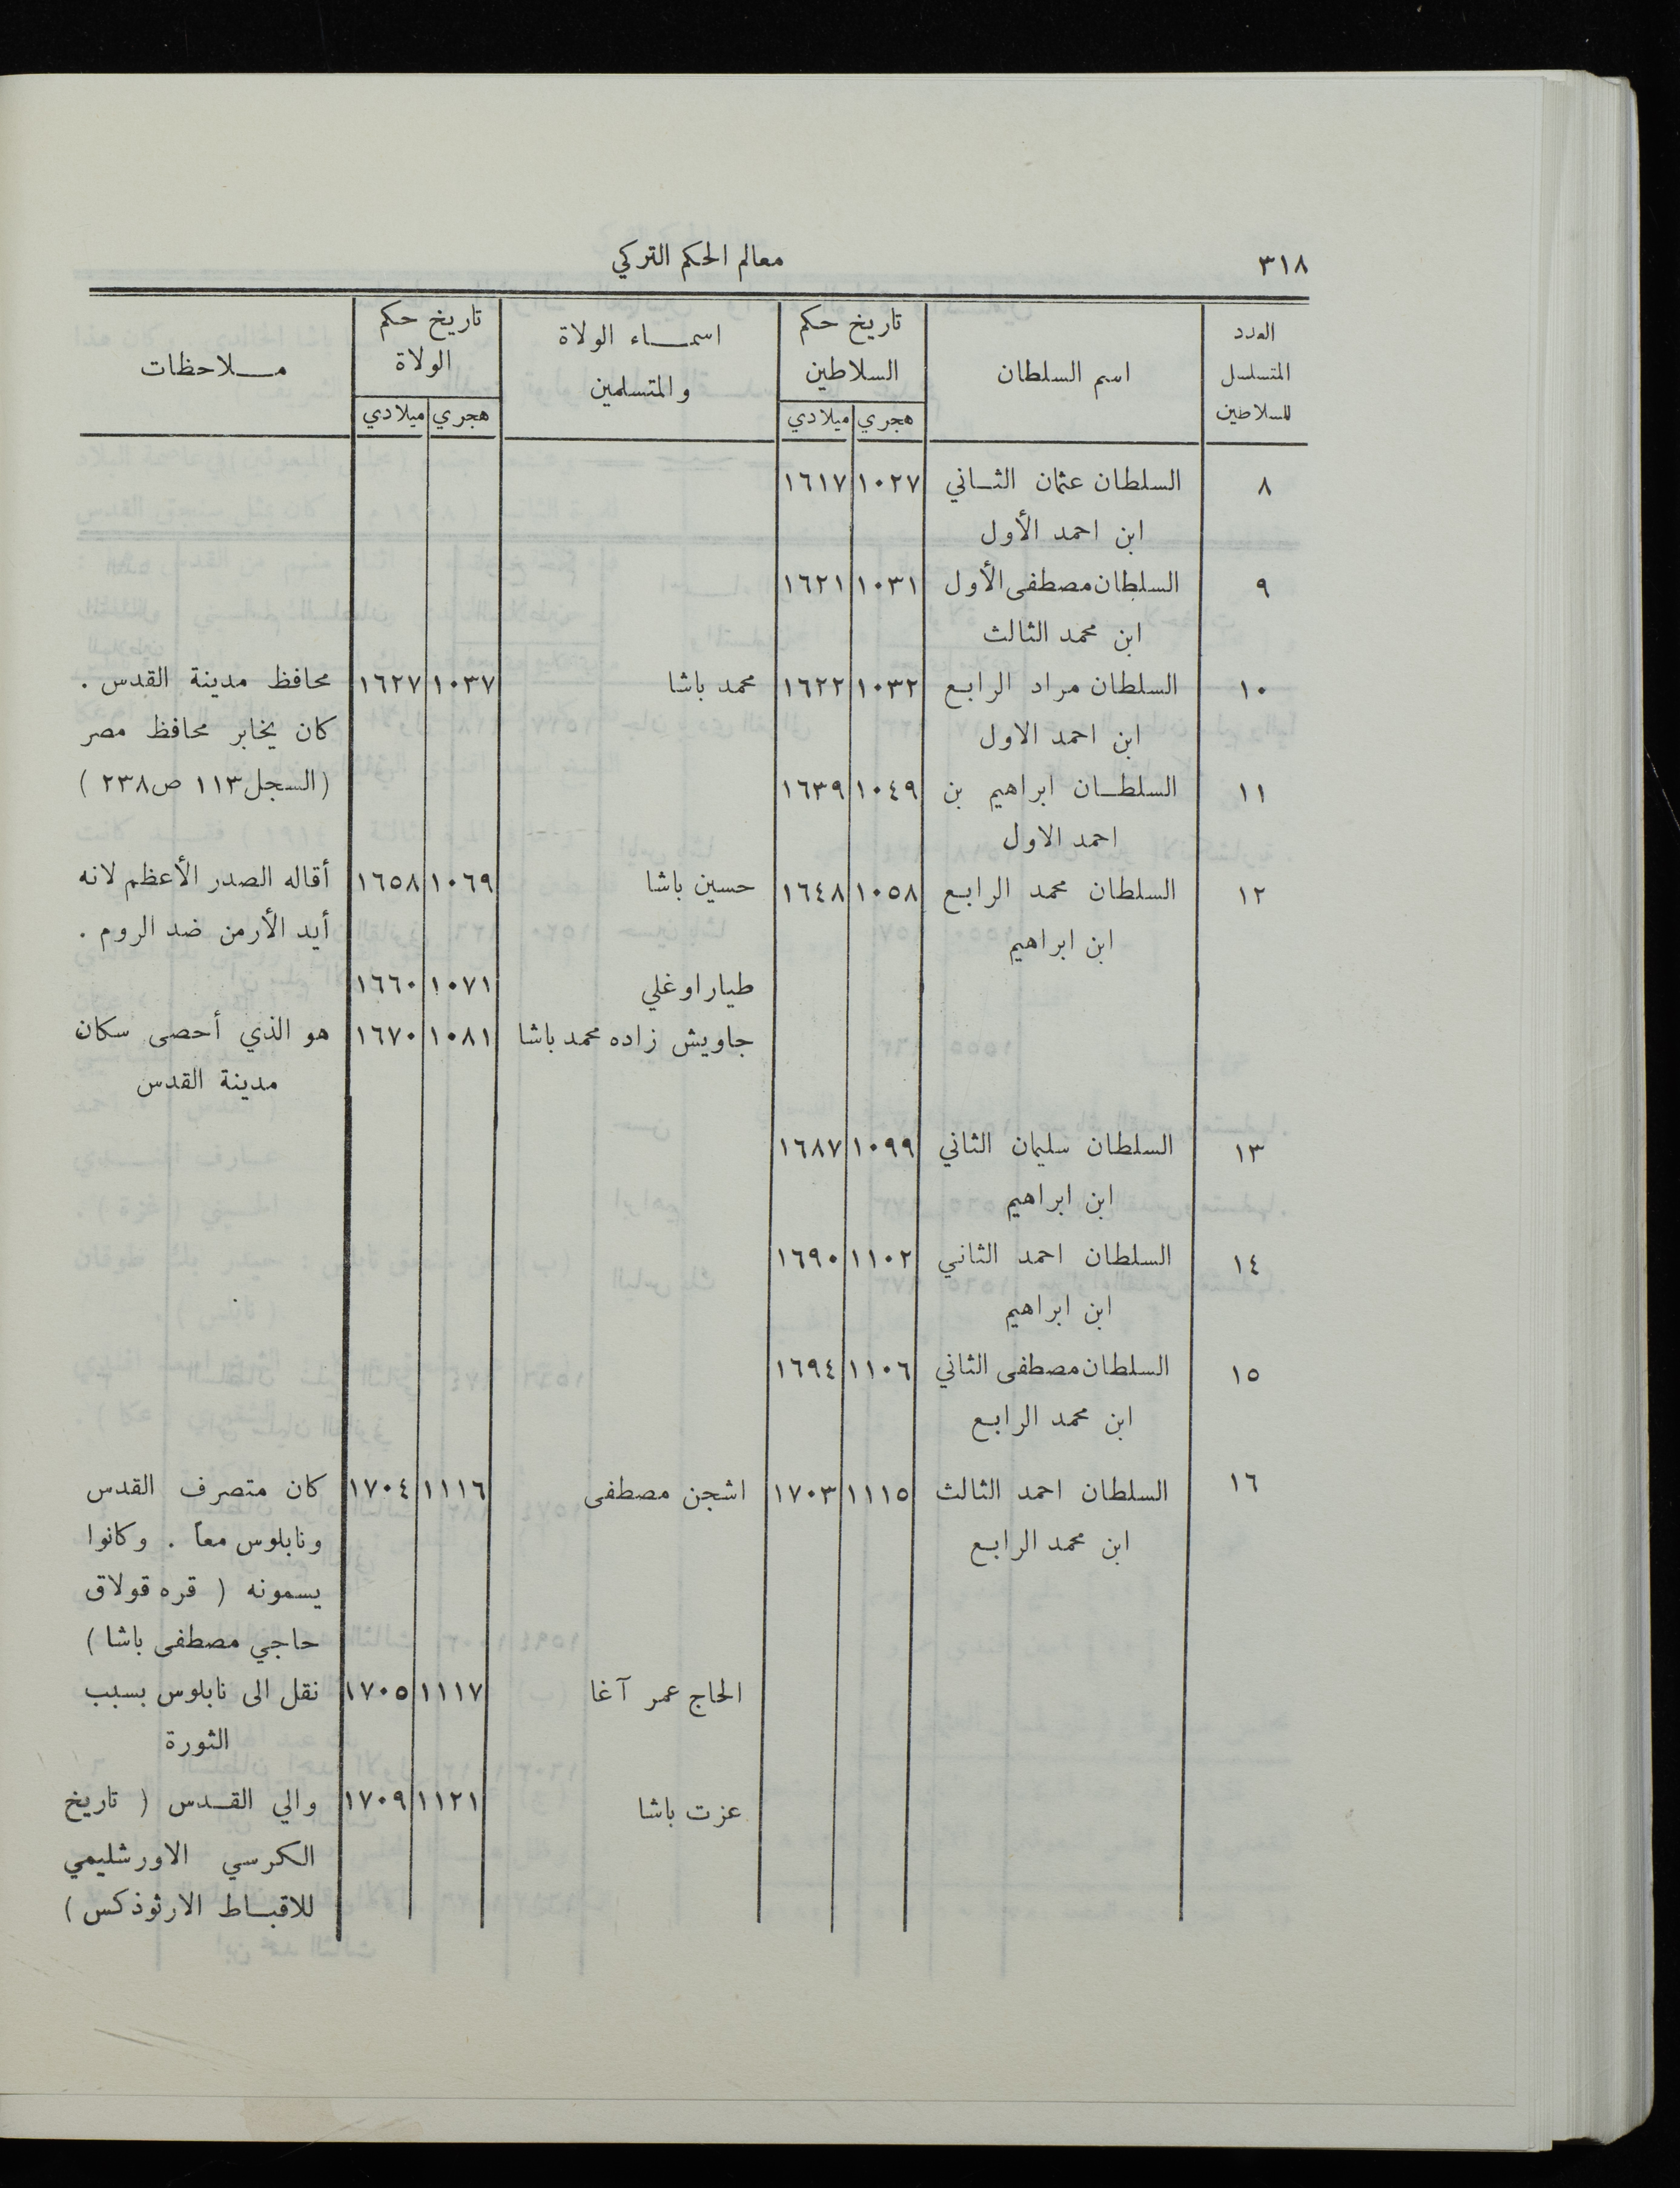 ٣١٨
معالم الحكم التركي
العدد المتسلسل للسلاطين | اسم السلطان | تاريخ حكم السلاطين هجري ميلادي | اسماء الولاة والمتسلمين | تاريخ حكم الولاة هجري ميلادي | ملاحظات
٨ السلطان عثمان الثاني ١٠٢٧ ١٦١٧
ابن احمد الأول
٩ السلطان مصطفى الأول ١٠٣١ ١٦٢١
ابن محمد الثالث
١٠ السلطان مراد الرابع ١٠٣٢ ١٦٢٢ محمد باشا ١٠٣٧ ١٦٢٧ محافظ مدينة القدس .
ابن احمد الاول كان يخابر محافظ مصر
١١ السلطان ابراهيم بن ١٠٤٩ ١٦٣٩ (السجل ١١٣ ص ٢٣٨ )
احمد الاول
١٢ السلطان محمد الرابع ١٠٥٨ ١٦٤٨ حسين باشا ١٠٦٩ ١٦٥٨ أقاله الصدر الأعظم لانه
ابن ابراهيم أيد الأرمن ضد الروم .
طيار اوغلي ١٠٧١ ١٦٦٠
جاويش زاده محمد باشا ١٠٨١ ١٦٧٠ هو الذي أحصى سكان
مدينة القدس
١٣ السلطان سليمان الثاني ١٠٩٩ ١٦٨٧
ابن ابراهيم
١٤ السلطان احمد الثاني ١١٠٢ ١٦٩٠
ابن ابراهيم
١٥ السلطان مصطفى الثاني ١١٠٦ ١٦٩٤
ابن محمد الرابع
١٦ السلطان احمد الثالث ١١١٥ ١٧٠٣ اشجن مصطفى ١١١٦ ١٧٠٤ كان متصرف القدس
ابن محمد الرابع ونابلوس معاً . وكانوا
يسمونه ( قره قولاق
حاجي مصطفى باشا )
الحاج عمر آغا ١١١٧ ١٧٠٥ نقل الى نابلوس بسبب
الثورة
عزت باشا ١١٢١ ١٧٠٩ والي القدس ( تاريخ
الكرسي الاورشليمي
للاقباط الارثوذكس )